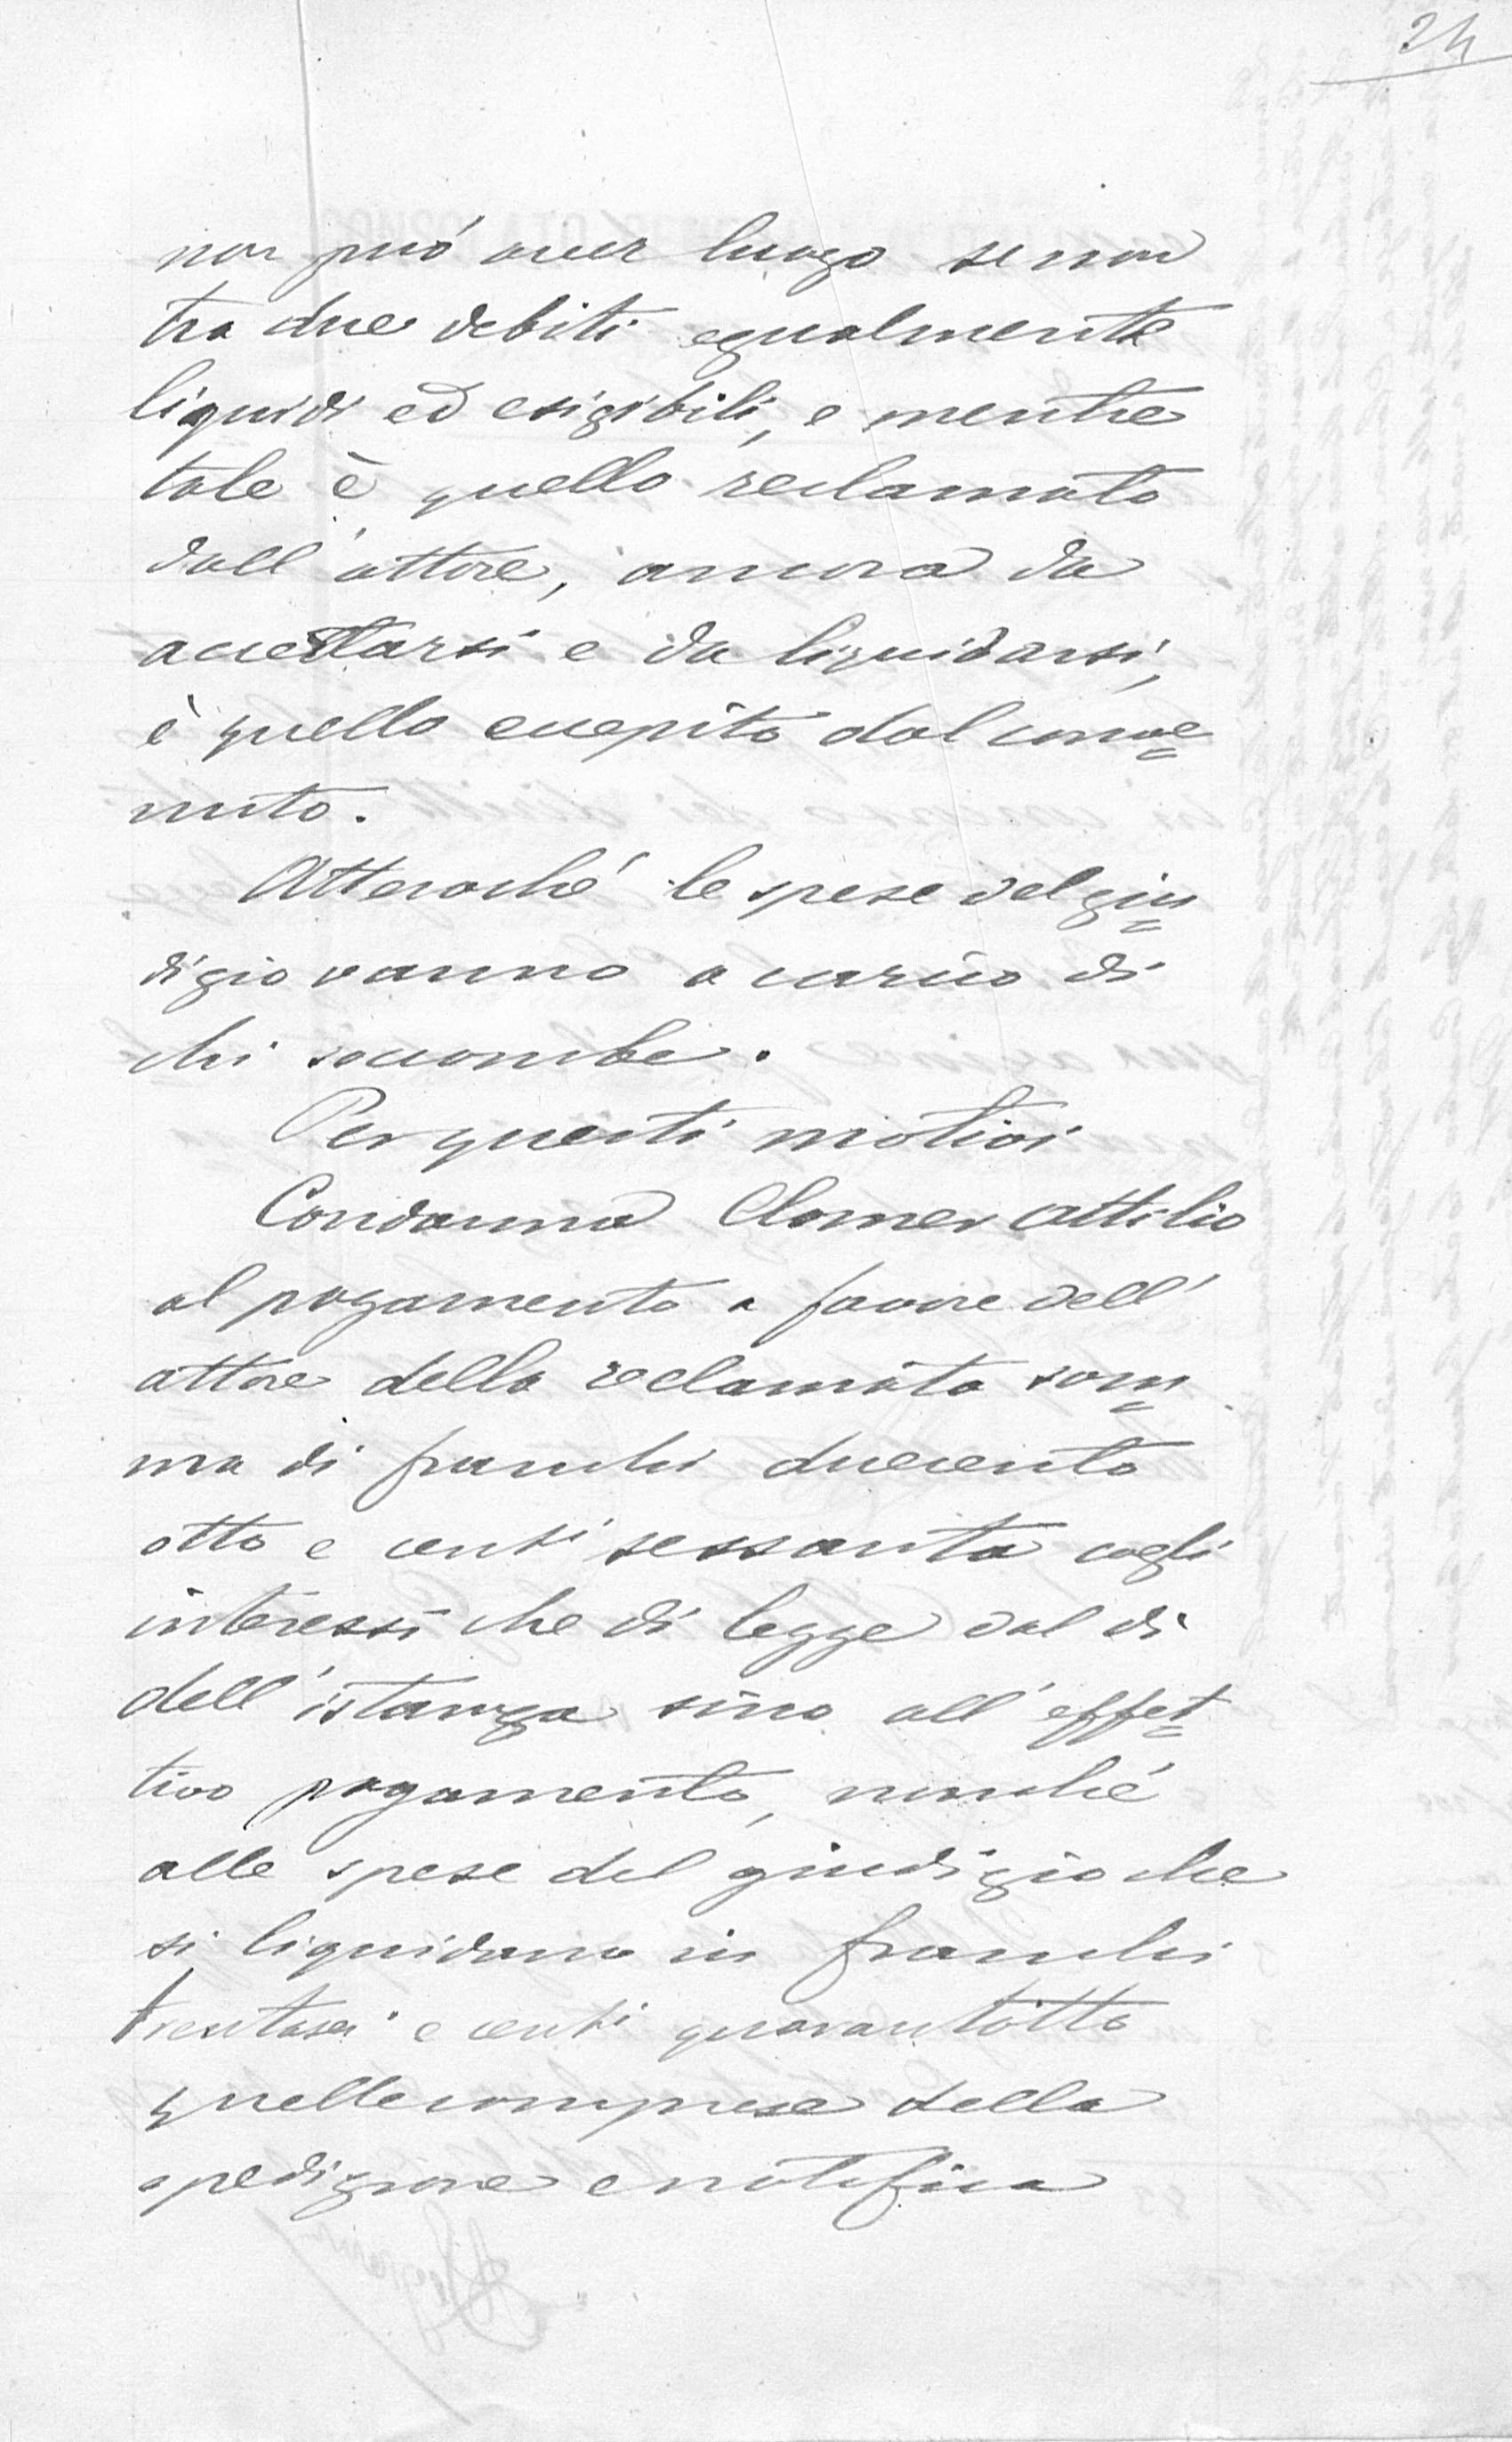 24
non può aver luogo se non
tra due debiti egualmente
liquidi ed esigibili, e mentre
tale è quello reclamato
dall'attore, ancora da
accertarsi e da liquidarsi,
è quello eccepito dal conve=
nuto.
Atteroché le spese del giu=
dizio vanno a carico di
chi soccombe.
Per questi motivi
Condanna Clomer Attilio
al pagamento a favore dell'
attore della reclamata som=
ma di franchi duecento
otto e centi sessanta cogli
interessi che di legge dal di
dell'istanza sino all'effet=
tivo pagamento, nonché
alle spese del giudizio che
si liquidano in franchi
trentasei e centi quarantotto
quelle comprese della
spedizione e notifica